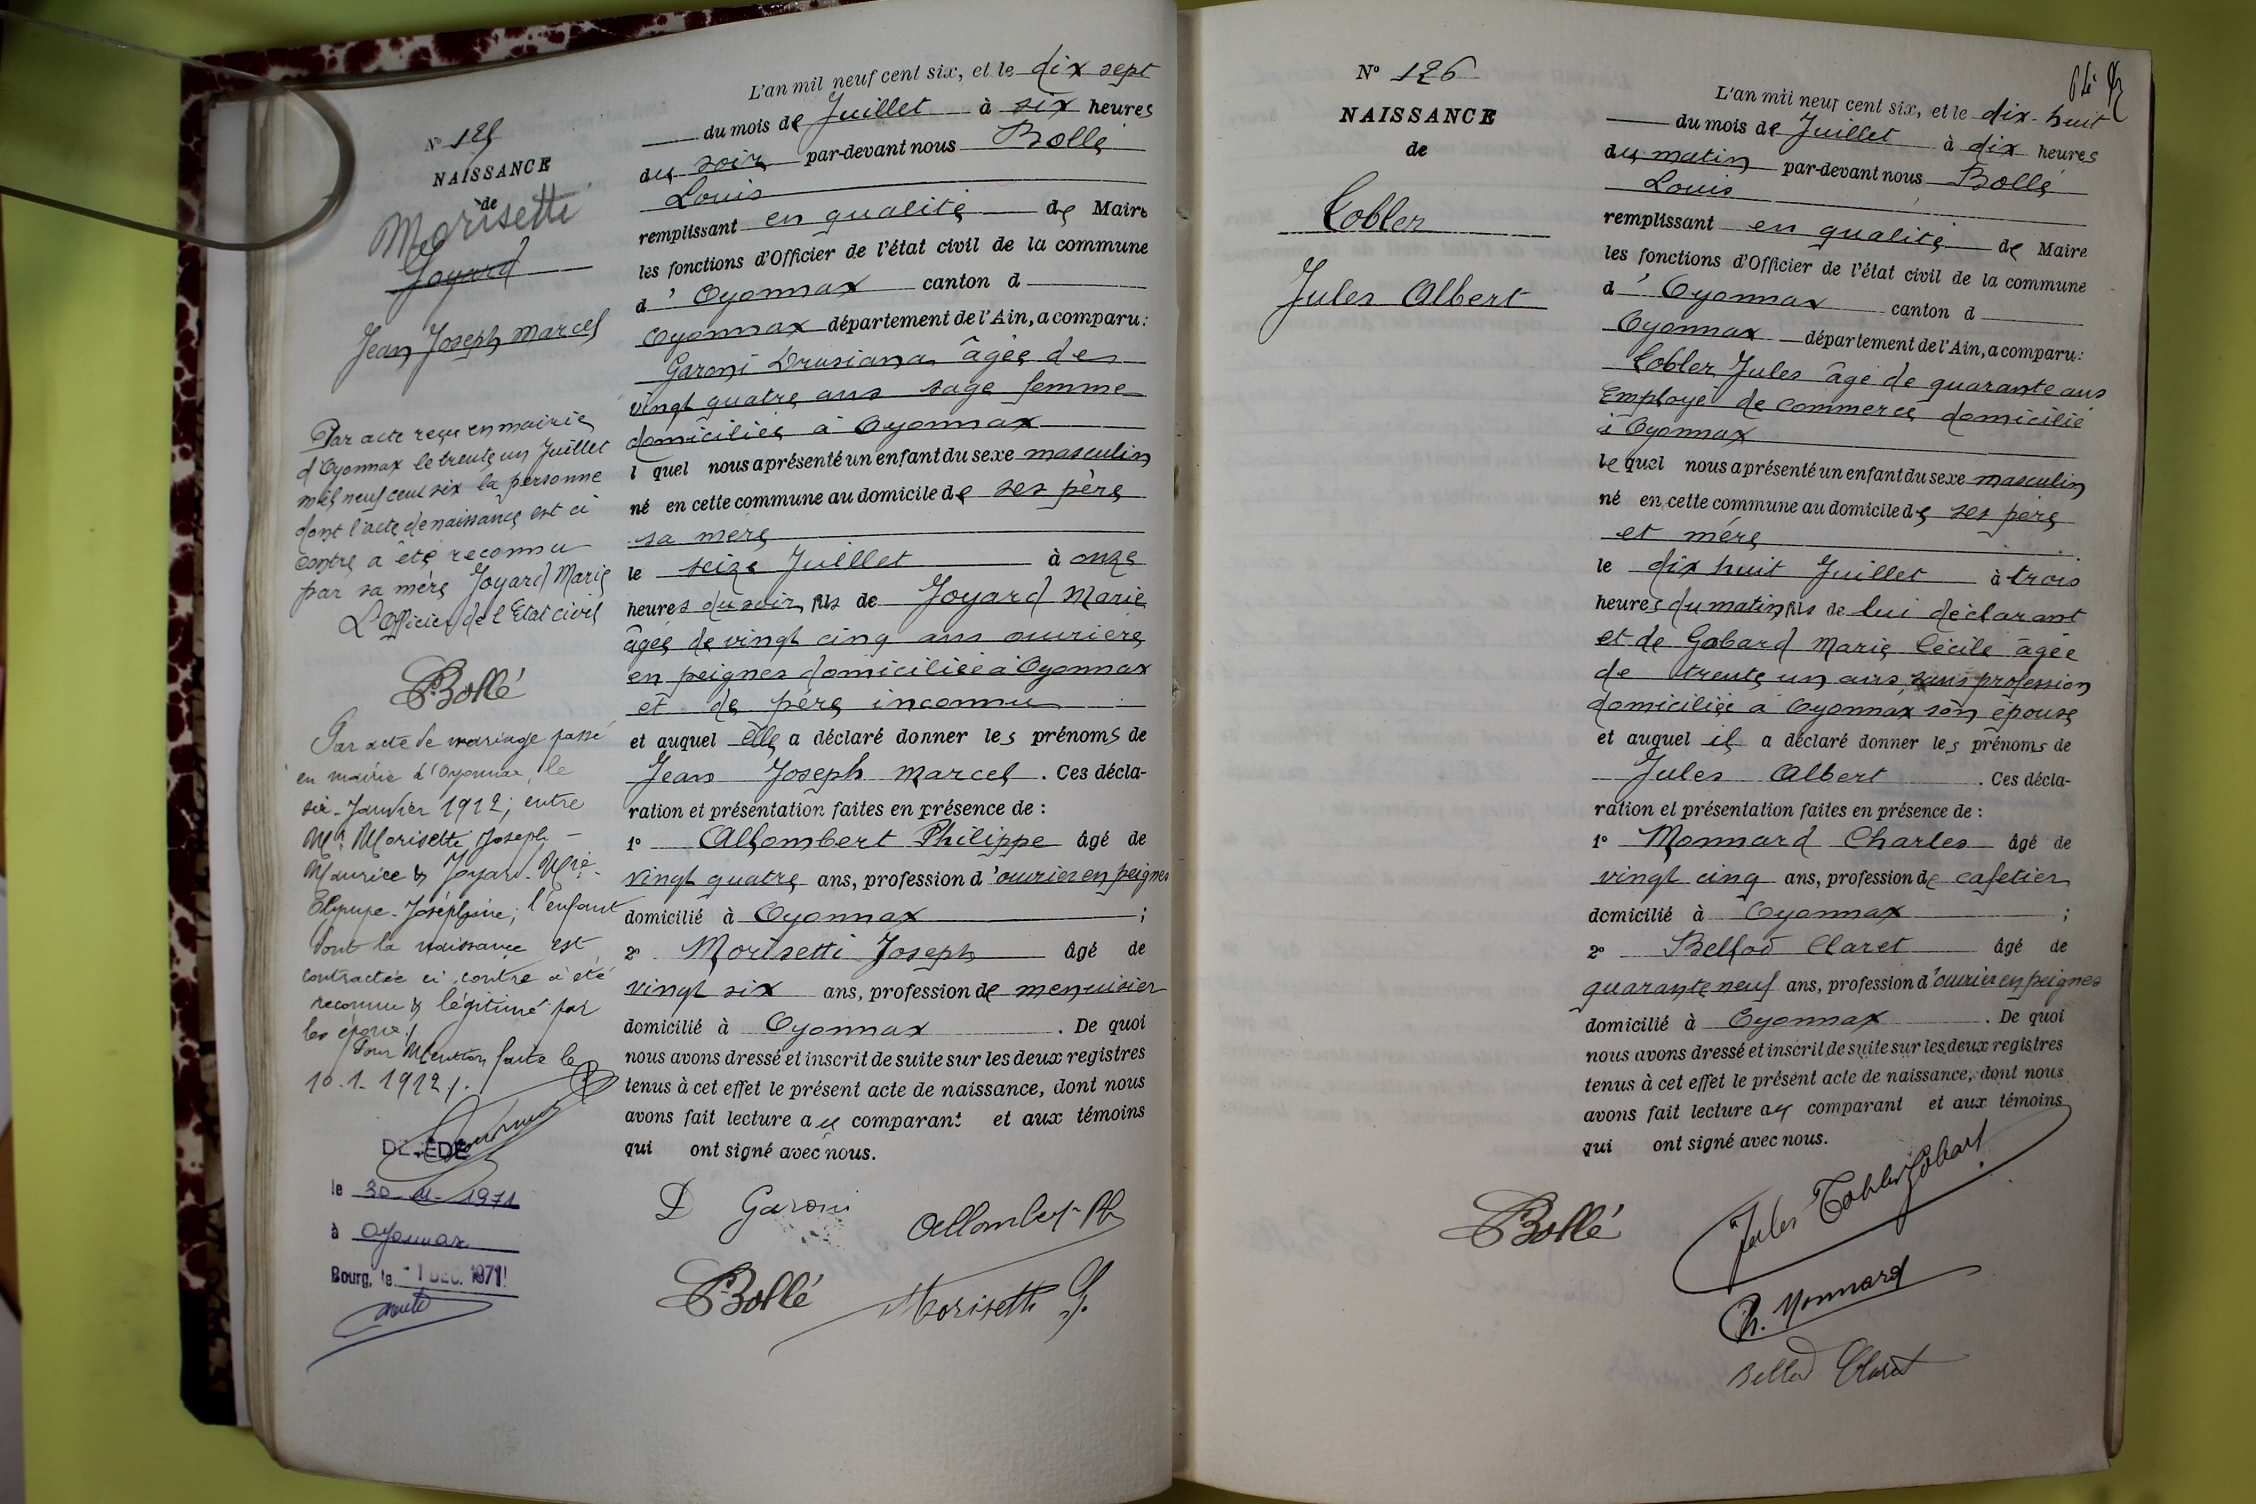 N° 125
NAISSANCE
de
Morisetti
Joyard
Jean Joseph Marcel
Par acte reçu en mairie
d'Oyonnax le trente un Juillet
mil neuf cent six la personne
dont l'acte de naissance est ci
contre a été reconnu
par sa mère Joyard Marie
L'Officier de l'Etat civil
Bollé
Par acte de mariage passé
en mairie d'Oyonnax, le
six Janvier 1912; entre
Mr. Morisetti Joseph -
Maurice & Joyard Mie
Joséphine; l'enfant
dont la naissance est
contractée ci contre a été
reconnu & légitimé par
les époux./
Pour Mention faite le
10.1.1912/.
DÉCÉDÉ
le 30 - 11 - 1971
à Oyonnax
Bourg, le - 1 DEC. 1971
L'an mil neuf cent six, et le dix sept
du mois de Juillet à six heures
du soir par-devant nous Bollé
Louis
remplissant en qualité de Maire
les fonctions d'Officier de l'état civil de la commune
d'Oyonnax canton d
Oyonnax département de l'Ain, a comparu:
Garoni Drusiana âgée de
vingt quatre ans sage femme
domiciliée à Oyonnax
l quel nous a présenté un enfant du sexe masculin
né en cette commune au domicile de ses père
sa mère
le seize Juillet à onze
heures du soir fils de Joyard Marie
âgée de vingt cinq ans ouvrière
en peignes domiciliée à Oyonnax
et de père inconnu
et auquel elle a déclaré donner les prénoms de
Jean Joseph Marcel. Ces décla-
ration et présentation faites en présence de :
1° Allombert Philippe âgé de
vingt quatre ans, profession d'ouvrier en peignes
domicilié à Oyonnax ;
2° Morisetti Joseph âgé de
vingt six ans, profession de menuisier
domicilié à Oyonnax. De quoi
nous avons dressé et inscrit de suite sur les deux registres
tenus à cet effet le présent acte de naissance, dont nous
avons fait lecture au comparant et aux témoins
qui ont signé avec nous.
D Garoni
Allombert Ph
Bollé
Morisetti J.
N° 126
NAISSANCE
de
Cobler
Jules Albert
L'an mil neuf cent six, et le dix-huit
du mois de Juillet à dix heures
du matin par-devant nous Bollé
Louis
remplissant en qualité de Maire
les fonctions d'Officier de l'état civil de la commune
d'Oyonnax canton d
Oyonnax département de l'Ain, a comparu:
Cobler Jules âgé de quarante ans
Employé de commerce domicilié
à Oyonnax
le quel nous a présenté un enfant du sexe masculin
né en cette commune au domicile de ses père
et mère
le dix huit Juillet à trois
heures du matin, fils de lui déclarant
et de Gobard Marie Cécile âgée
de trente un ans, sans profession
domiciliée à Oyonnax son épouse
et auquel il a déclaré donner les prénoms de
Jules Albert. Ces décla-
ration et présentation faites en présence de :
1° Monnard Charles âgé de
vingt cinq ans, profession de cafetier
domicilié à Oyonnax ;
2° Belfod Claret âgé de
quarante neuf ans, profession d'ouvrier en peignes
domicilié à Oyonnax. De quoi
nous avons dressé et inscrit de suite sur les deux registres
tenus à cet effet le présent acte de naissance, dont nous
avons fait lecture au comparant et aux témoins
qui ont signé avec nous.
Bollé
Jules Cobler Gobart
Ch. Monnard
Claret